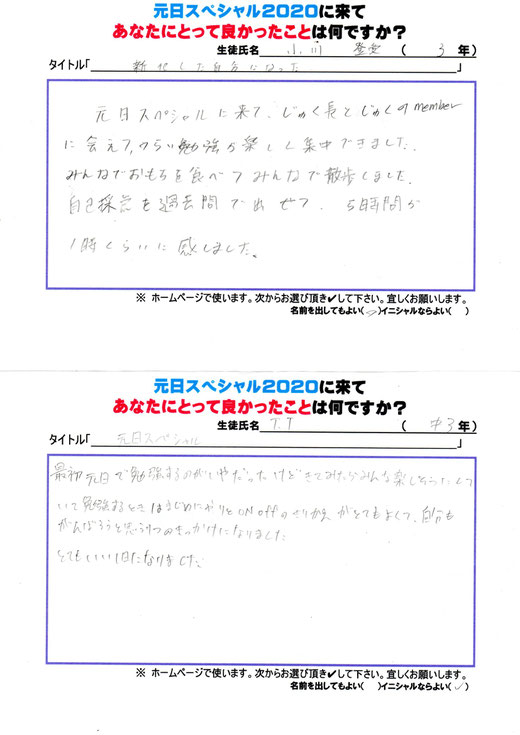 元日スペシャル2020に来て
あなたにとって良かったことは何ですか?
生徒氏名 小川 (3年)
タイトル「新化した自分になった」
元日スペシャルに来て、じゅく長とじゅくのmember
に会えて、つらい勉強が楽しく集中できました。
みんなでおもちを食べてみんなで散歩しました。
自己採点を過去問で出せて、5時間が
1時くらいに感じました。
※ ホームページで使います。次からお選び頂き✔して下さい。宜しくお願いします。
名前を出してもよい(✓)イニシャルならよい( )
元日スペシャル2020に来て
あなたにとって良かったことは何ですか?
生徒氏名 T.T (中3年)
タイトル「元日スペシャル」
最初元日で勉強するのがいやだったけどきてみたらみんな楽しそうにして
いて勉強するときはまじめにやりとON offのきりかえがとてもよくて、自分も
がんばろうと思うつのきっかけになりました
とてもいい1日になりました
※ ホームページで使います。次からお選び頂き✔して下さい。宜しくお願いします。
名前を出してもよい( )イニシャルならよい(✓)